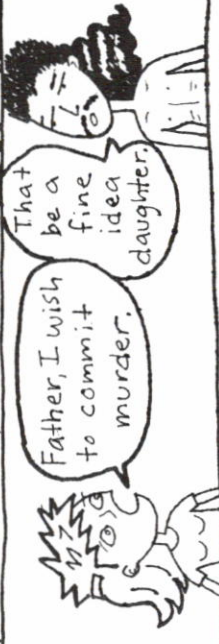 Father, I wish
to commit
murder.
That
be a
fine
idea
daughter.